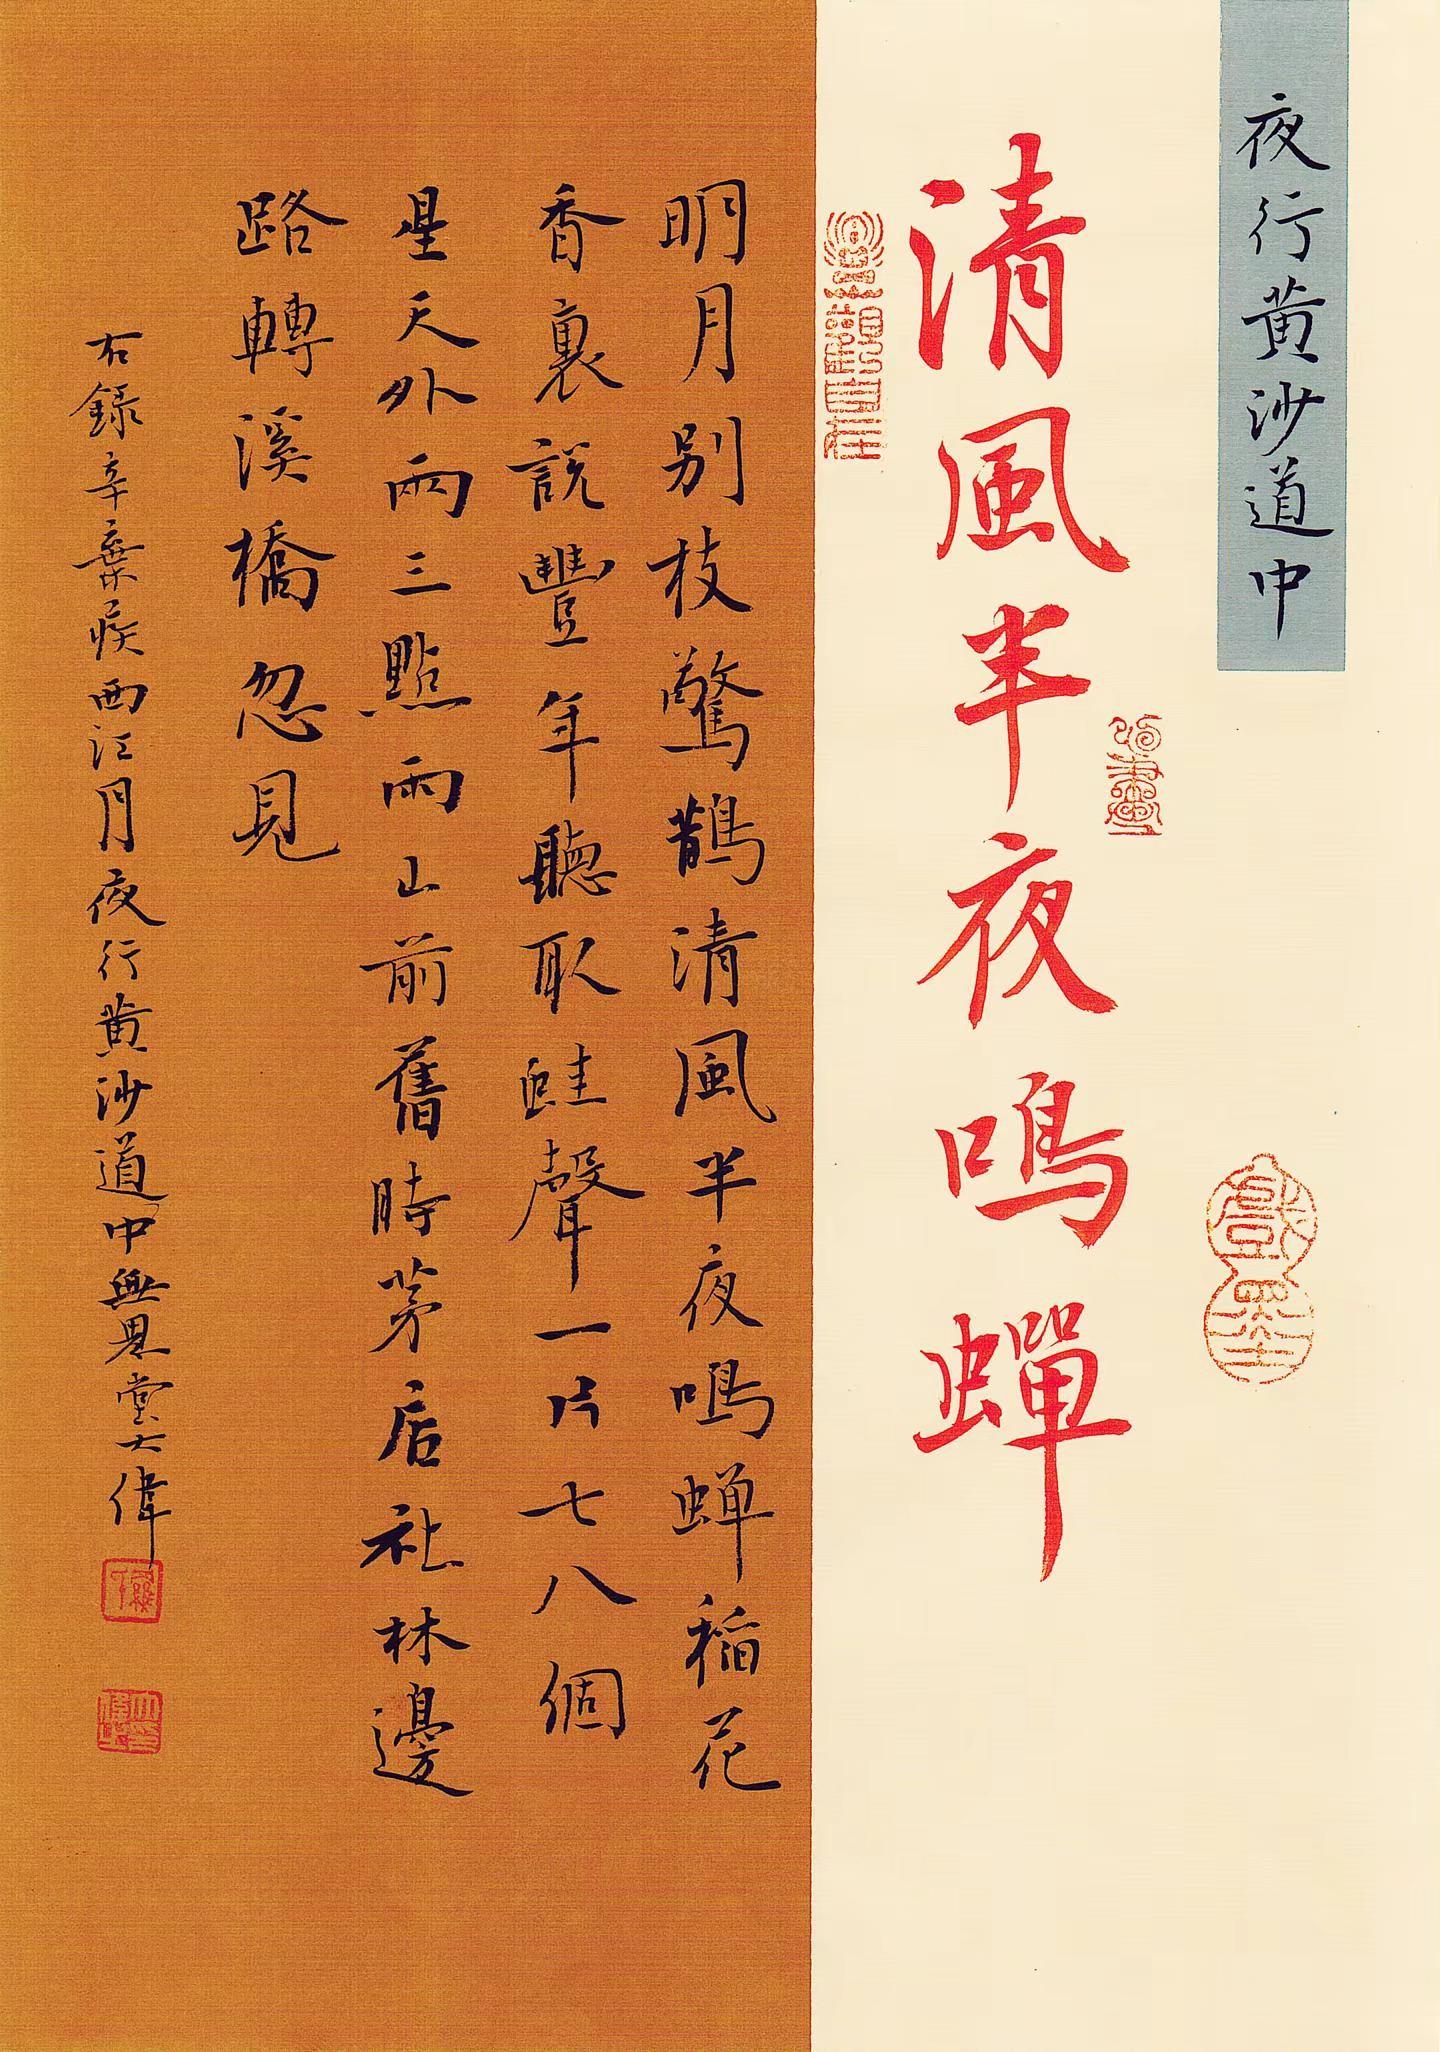 夜行黄沙道中
清風半夜鳴蟬
明月別枝驚鵲清風半夜鳴蝉稻花
香裏說豐年聽取蛙聲一片七八個
星天外兩三點雨山前舊時茅店社林邊
路轉溪橋忽見
右錄辛棄疾西江月夜行黄沙道中無思堂大偉
戲墨